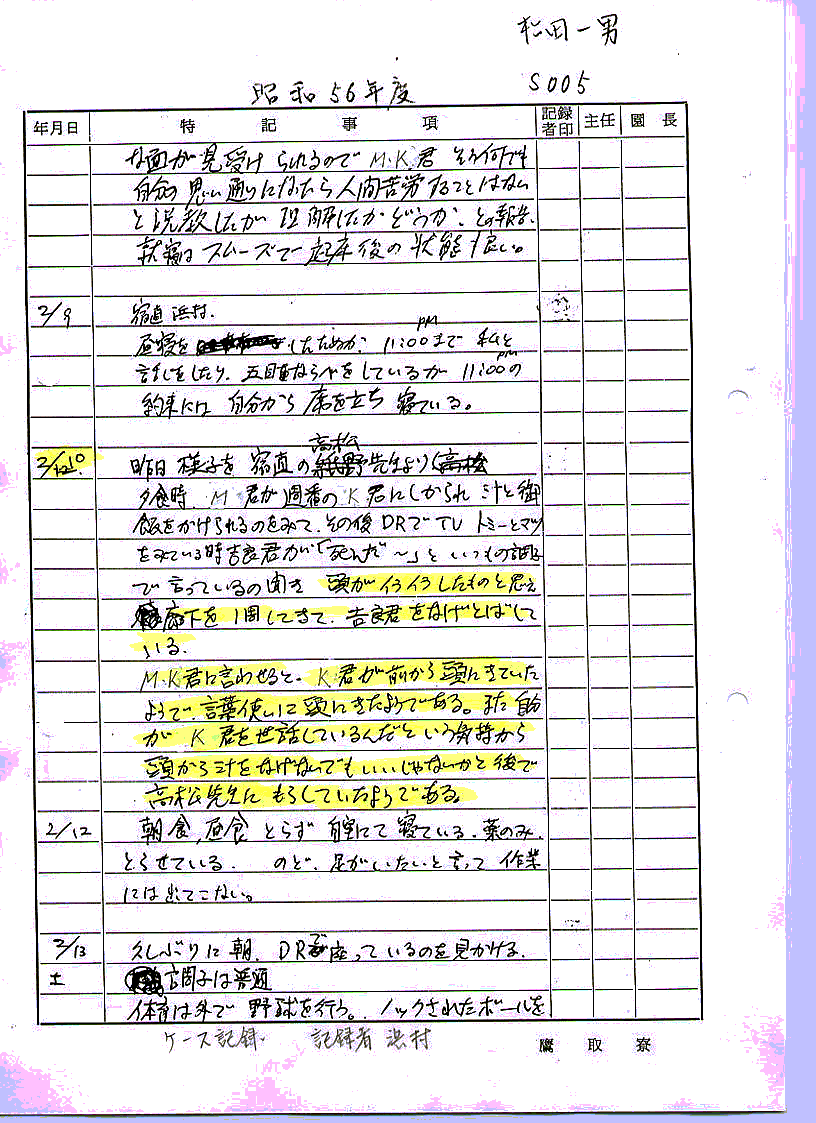 松田一男
S005
昭和56年度
年月日 特記事項 記録者印 主任 園長
な面が見受けられるので M.K.君 そう何でも
自分の思い通りになったら人間苦労することはない
と説教したが理解したかどうか、との報告、
就寝はスムーズで起床後の状態も良い。
2/9 宿直 浜村.
昼寝を したためか、11:00pmまで 私と
話しをしたり、五目並らべをしているが 11:00pmの
約束には 自分から席を立ち 寝ている。
高松
2/10 昨日 様子を 宿直の 先生より
夕食時 M君が週番のK君にしかられ 汁と御
飯をかけられるのをみて、その後DRでTV トミーとマツ
をみている時吉良君が「死んだ〜」といつもの調子
で言っているの聞き 頭がイライラしたものと思え
廊下を1周してきて、吉良君をなげとばして
いる.
M.K君に言わせると、K君が前から頭にきていた
ようで、言葉使いに頭にきたようである。また自分
が K君を世話しているんだという気持から
頭から汁をなげないでもいいじゃないかと後で
高松先生に もらしていたようである。
2/12 朝食,昼食 とらず 自室にて 寝ている. 薬のみ、
とらせている. のど、足がいたいと言って 作業
には出てこない。
2/13 久しぶりに朝、DRで座っているのを見かける.
土 言周子は普通
体育は外で 野球を行う。ノックされたボールを
ケース記録. 記録者 浜村
鷹取寮